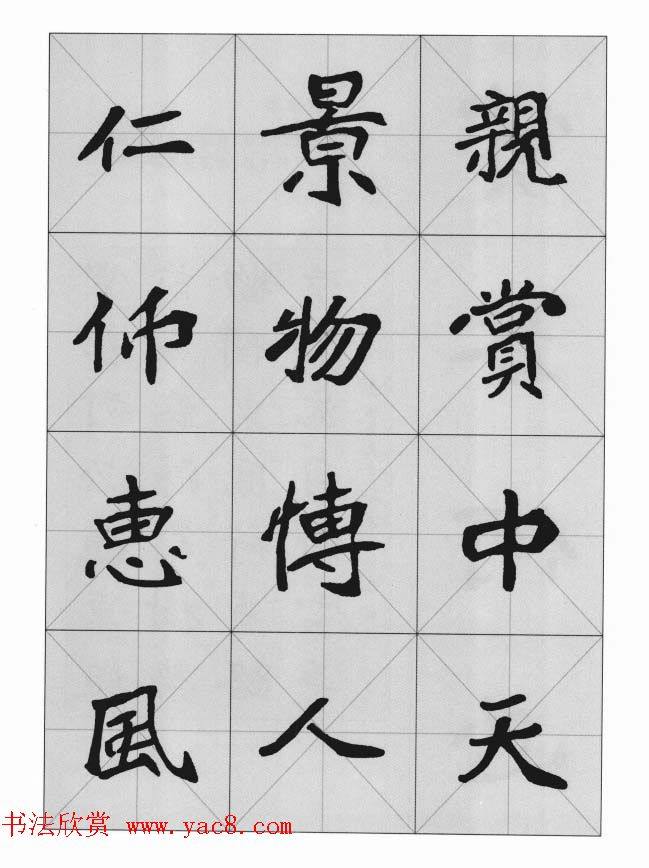 親賞中天
景物愽人
仁师惠風
书法欣赏 www.yac8.com